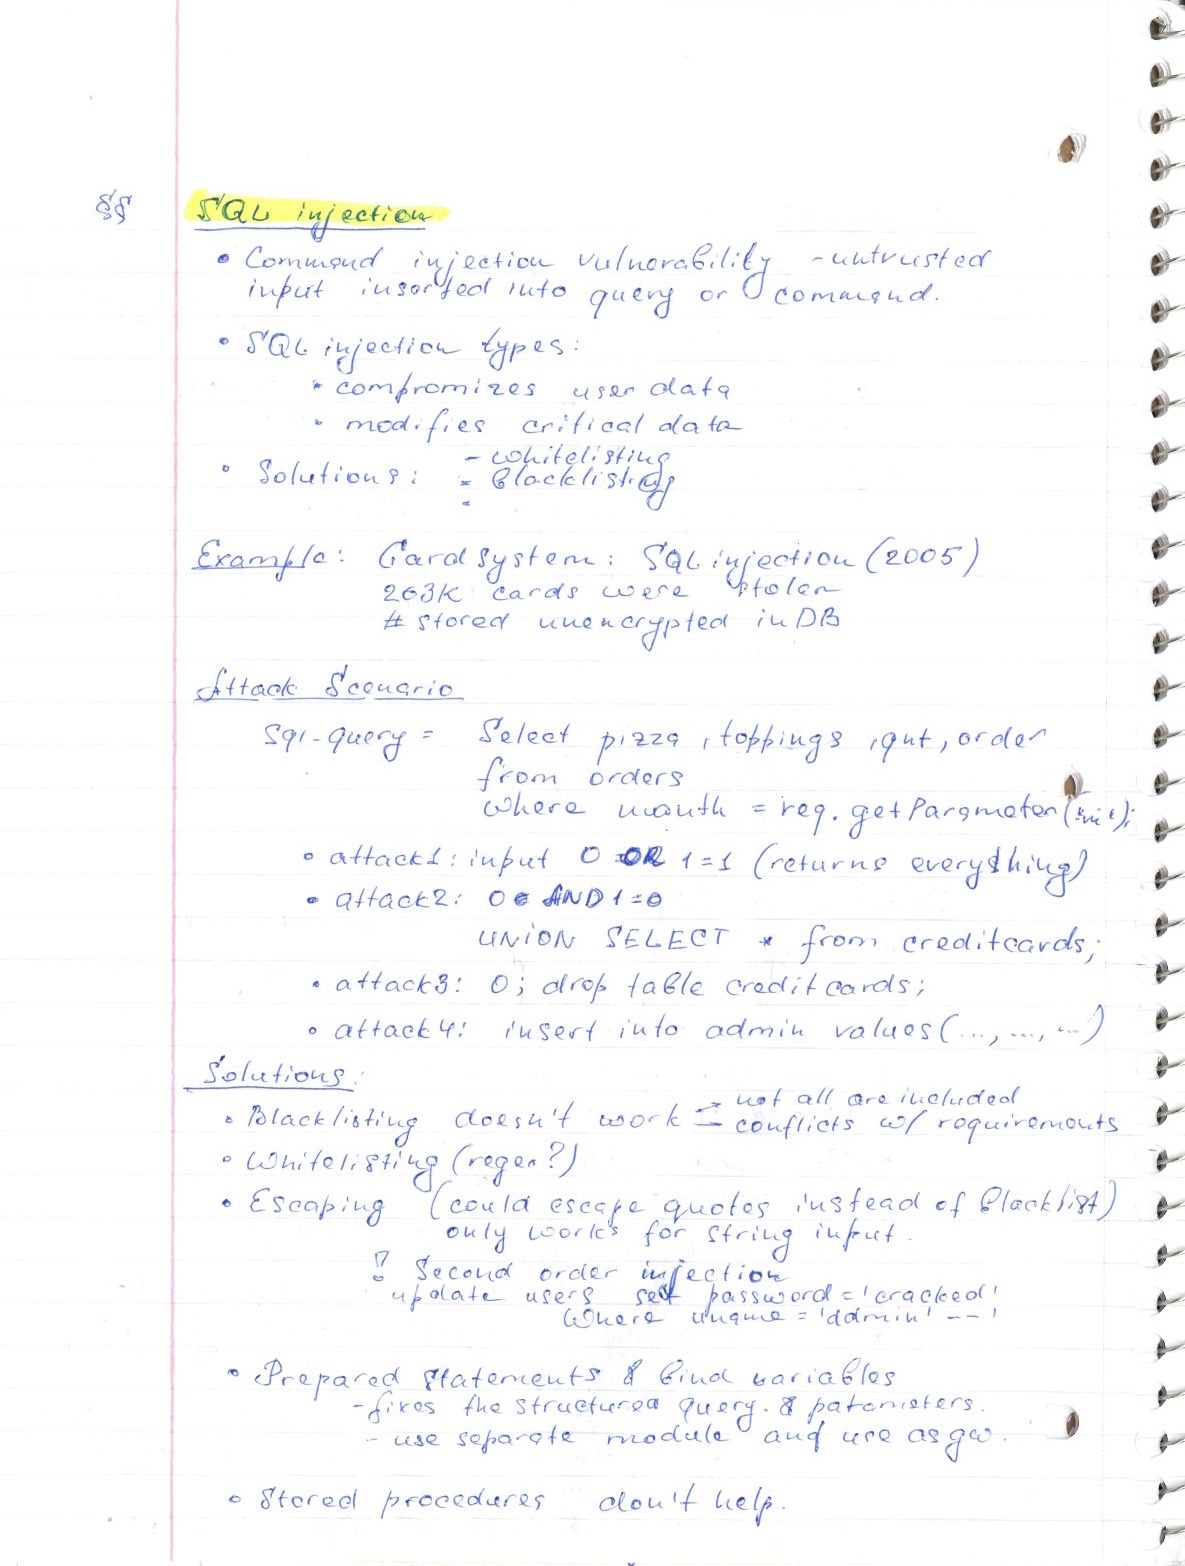 §§ SQL injection
• Command injection vulnerability - untrusted
input inserted into query or command.
• SQL injection types:
• compromizes user data
• modifies critical data
- whitelisting
• Solutions: - Blacklisting
-
Example: Cardsystem: SQL injection (2005)
263K cards were stolen
# stored unencrypted in DB
Attack Scenario
Sql-query = Select pizza, toppings, qnt, order
from orders
where month = req.getParameter(
• attack1: input 0 OR 1=1 (returns everything)
• attack2: 0 AND 1=0
UNION SELECT * from creditcards;
• attack3: 0; drop table creditcards;
• attack4: insert into admin values(..., ..., ...)
Solutions:
- not all are included
• Blacklisting doesn't work - conflicts w/ requirements
• Whitelisting (regex?)
• Escaping (could escape quotes instead of blacklist)
only works for string input.
! Second order injection
update users set password='cracked'
where uname='admin' -- '
• Prepared statements & bind variables
- fixes the structured query & parameters.
- use separate module and use as gw.
• Stored procedures don't help.